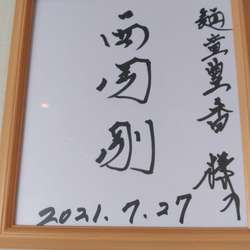 麺童豊香 様へ
西岡剛
2021.7.27